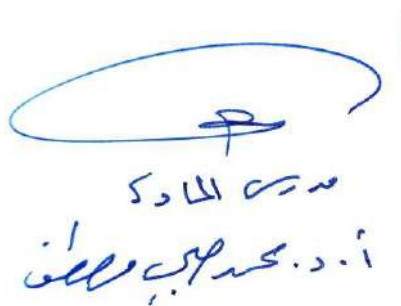 مدرس المادة
أ.د. محمد صبحي مصطفى